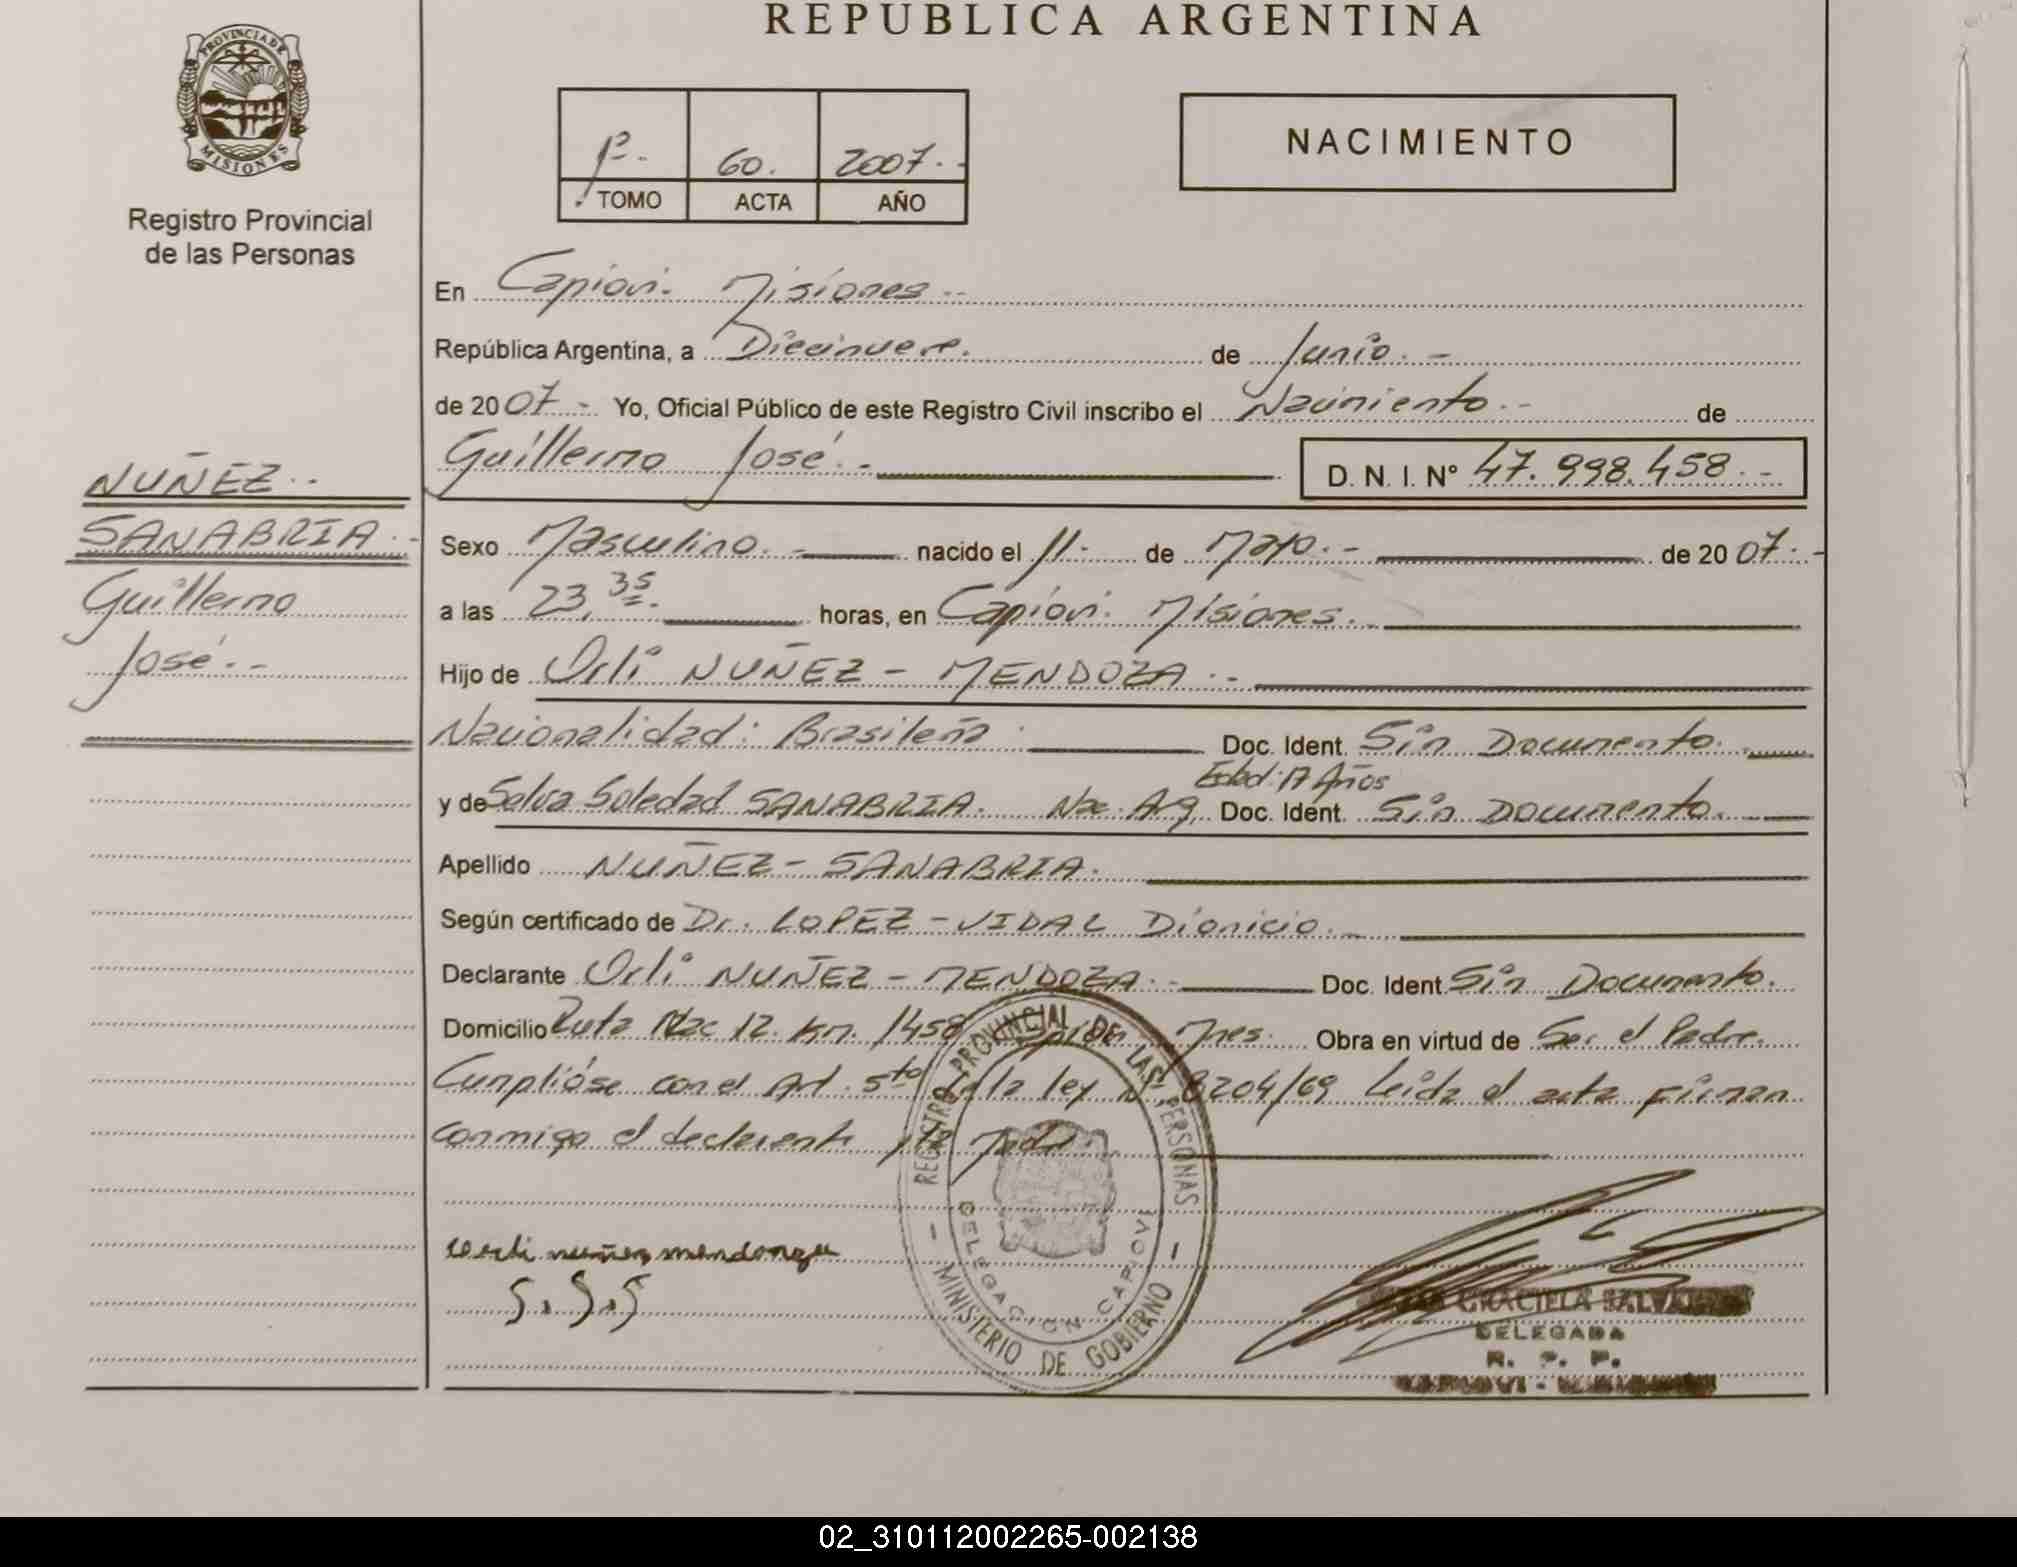 REPUBLICA ARGENTINA
PROVINCIA DE
MISIONES
Registro Provincial
de las Personas
1º.- 60. 2007.-
TOMO ACTA AÑO
NACIMIENTO
En Capiovi. Misiones.-
República Argentina, a Diecinueve. de Junio.-
de 2007.- Yo, Oficial Público de este Registro Civil inscribo el Nacimiento.- de
Guillermo José.- D. N. I. Nº 47.998.458.-
NUÑEZ.-
SANABRIA.-
Guillermo
José.-
Sexo Masculino.- nacido el 11.- de Mayo.- de 2007.-
a las 23,35. horas, en Capiovi. Misiones.-
Hijo de Orli NUÑEZ - MENDOZA.-
Nacionalidad: Brasileña. Doc. Ident. Sin Documento.
Edad: 17 Años
y de Selva Soledad SANABRIA. Nac. Arg. Doc. Ident. Sin Documento.
Apellido NUÑEZ - SANABRIA.
Según certificado de Dr. LOPEZ - VIDAL Dionicio.-
Declarante Orli NUÑEZ - MENDOZA.- Doc. Ident. Sin Documento.
Domicilio Ruta Nac 12. Km. 1458 Mnes. Obra en virtud de Ser el Padre.
Cumplióse con el Art. 5to de la ley Nº 8204/69 Leida el acta firman
conmigo el declarante y la Madre.
REGISTRO PROVINCIAL DE LAS PERSONAS
DELEGACION CAPIOVI
MINISTERIO DE GOBIERNO
nuñes mendonza
S. S. S
GRACIELA
DELEGADA
R. P. P.
CAPIOVI - MISIONES
02_310112002265-002138